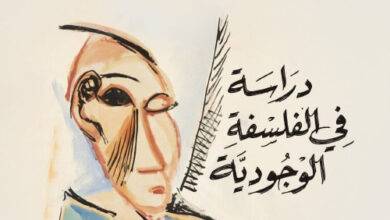 دراسَة
فِي الفلسِفَةِ
الوُجُوديَّة